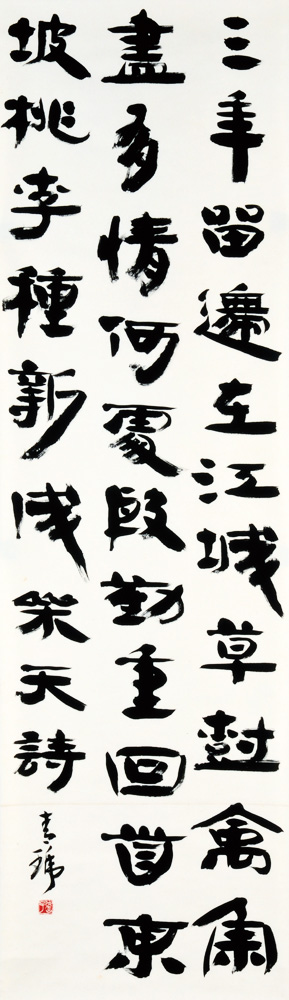 三年留滯在江城草樹禽魚
盡有情何處殷勤重回首東
坡桃李種新成樂天詩